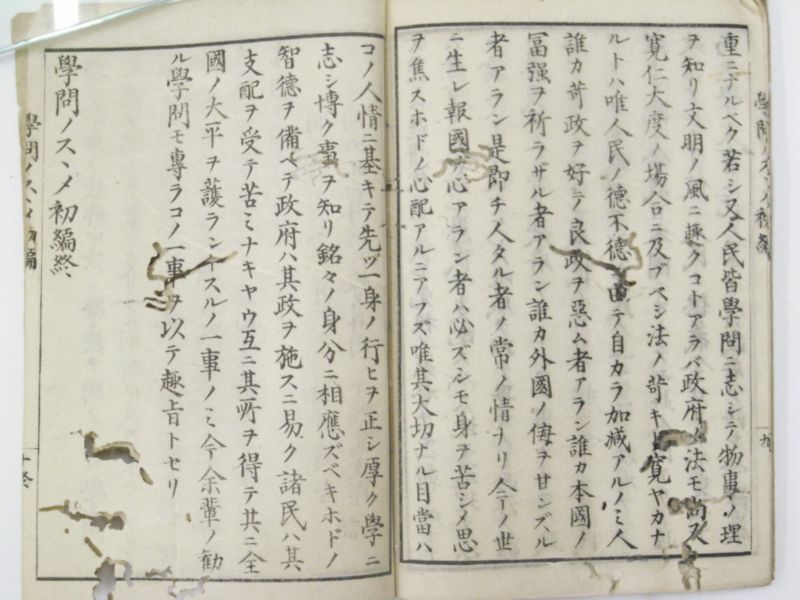 重ニナルベク若シ又人民皆學問ニ志シテ物事ノ理
ヲ知リ文明ノ風ニ趣クコトアラバ政府ノ法モ尚又
寛仁大度ノ場合ニ及ブベシ法ノ苛キト寛ヤカナ
ルトハ唯人民ノ德不德ニ由テ自カラ加減アルノミ人
誰カ苛政ヲ好テ良政ヲ惡ム者アラン誰カ本國ノ
冨强ヲ祈ラザル者アラン誰カ外國ノ侮ヲ甘ンズル
者アラン是即チ人タル者ノ常ノ情ナリ今ノ世
ニ生レ報國ノ心アラン者ハ必ズシモ身ヲ苦シメ思
ヲ焦スホドノ心配アルニアラズ唯其大切ナル目當ハ
コノ人情ニ基キテ先ヅ一身ノ行ヒヲ正シ厚ク學ニ
志シ博ク事ヲ知リ銘々ノ身分ニ相應ズベキホドノ
智德ヲ備ヘテ政府ハ其政ヲ施スニ易ク諸民ハ其
支配ヲ受テ苦ミナキヤウ互ニ其所ヲ得テ共ニ全
國ノ大平ヲ護ラントスルノ一事ノミ今余輩ノ勸
ル學問モ專ラコノ一事ヲ以テ趣旨トセリ
學問ノスヽメ初編終
學問ノスヽメ初編
十終